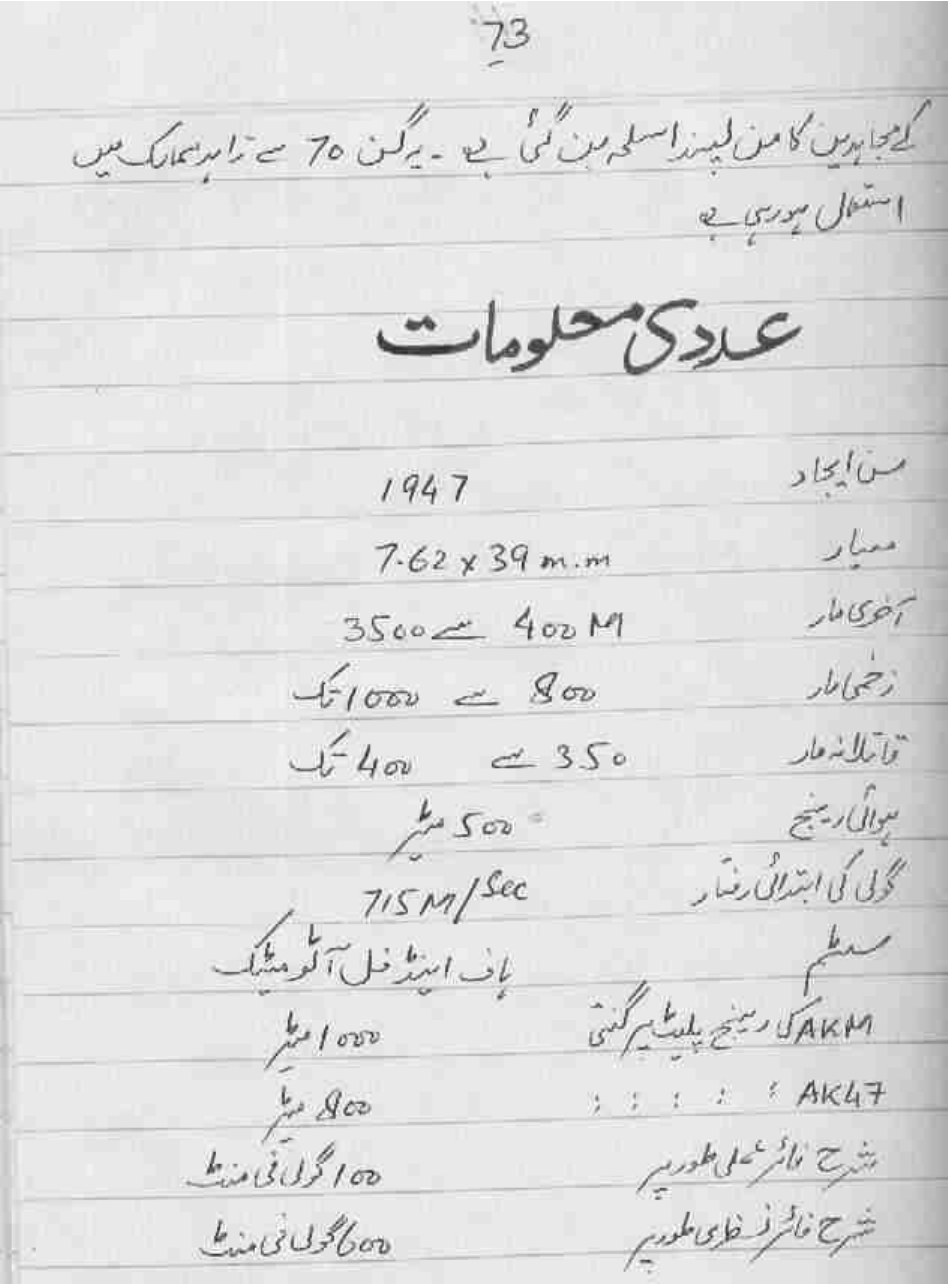 73
کے مجاہدین کا من پسند اسلحہ بن گئی ہے ۔ یہ گن 70 سے زاہد ممالک میں
استعمال ہو رہی ہے
عددی معلومات
سن ایجاد 1947
معیار 7.62 x 39 m.m
آخری مار 400 M سے 3500
زخمی مار 800 سے 1000 تک
قاتلانہ مار 350 سے 400 تک
ہوائی رینج 500 میٹر
گولی کی ابتدائی رفتار 715 M/Sec
سسٹم ہاف اینڈ فل آٹومیٹک
AKM کی رینج پلیٹ پر گنتی 1000 میٹر
AK47 : : : : : 800 میٹر
شرح فائر عملی طور پر 100 گولی فی منٹ
شرح فائر نظری طور پر 600 گولی فی منٹ